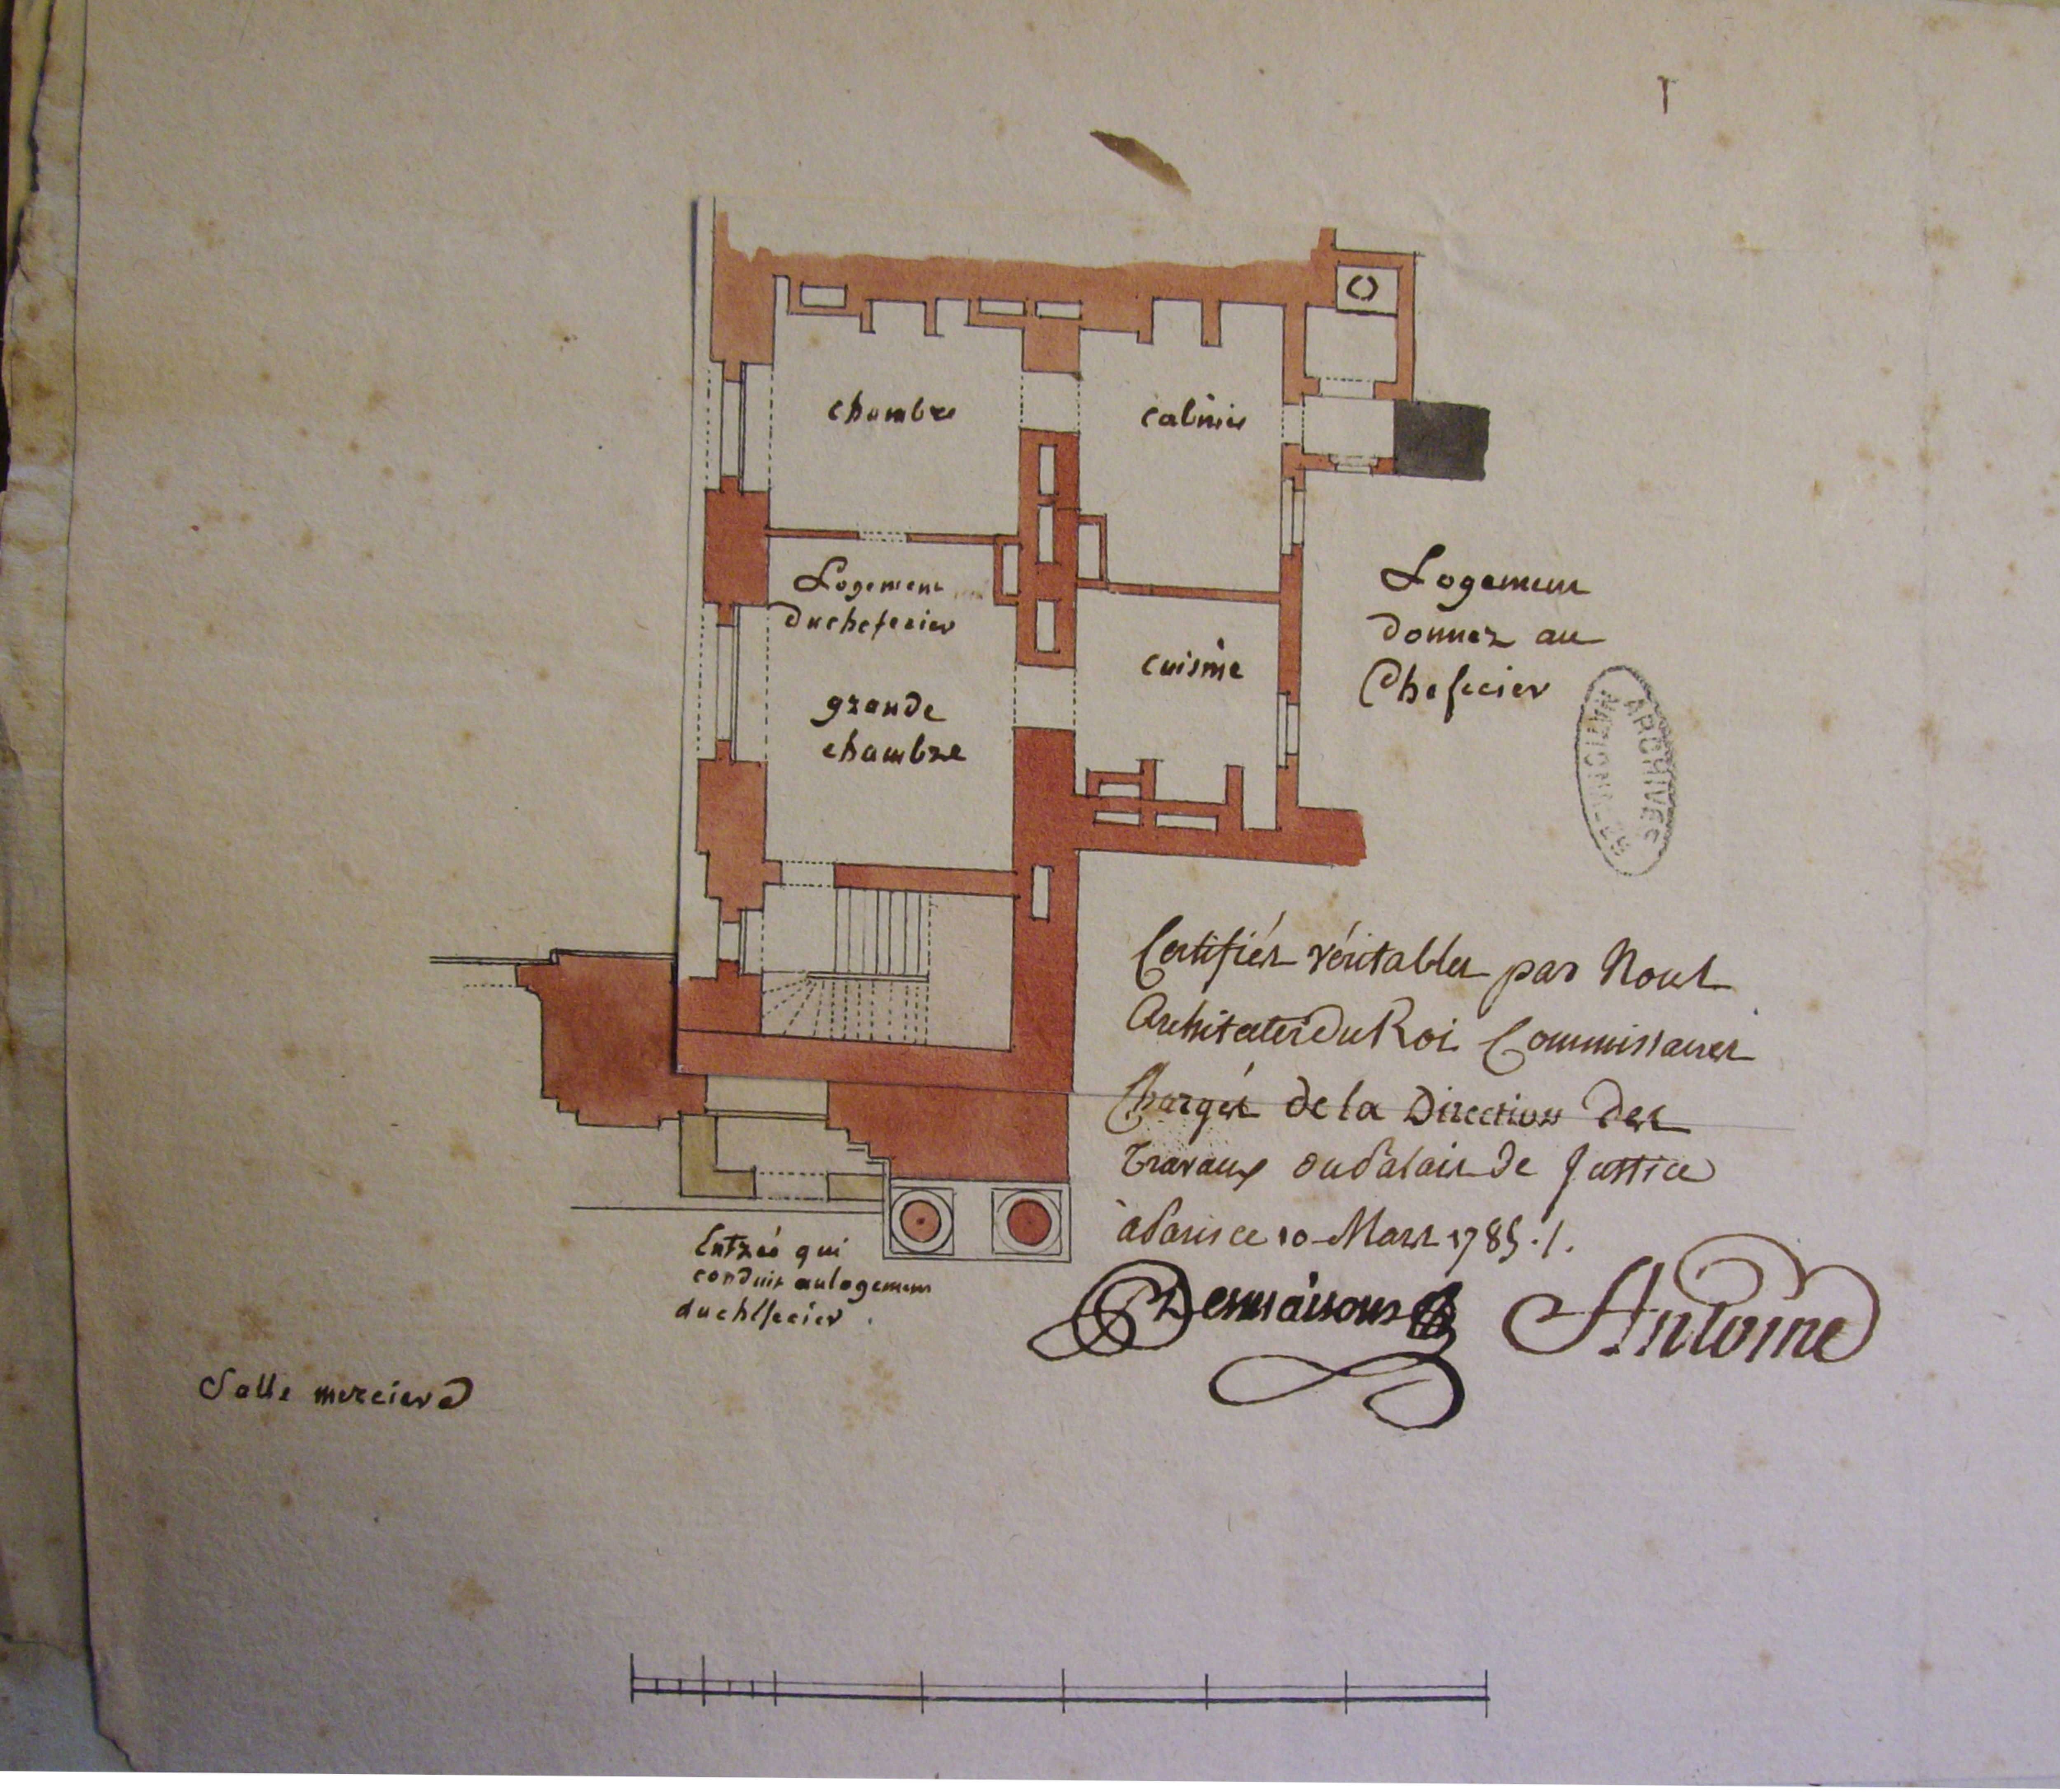 chambre
cabinet
Logement
du chefecier
grande
chambre
cuisine
Logement
donnez au
Chefecier
ARCHIVES
NATIONALES
Certifiés véritables par Nous
Architectes du Roi Commissaires
Chargés de la Direction des
Travaux du Palais de Justice
à Paris ce 10 Mars 1785 ./.
Desmaisons Antoine
Entrée qui
conduit au logement
du chefecier
Salle merciere